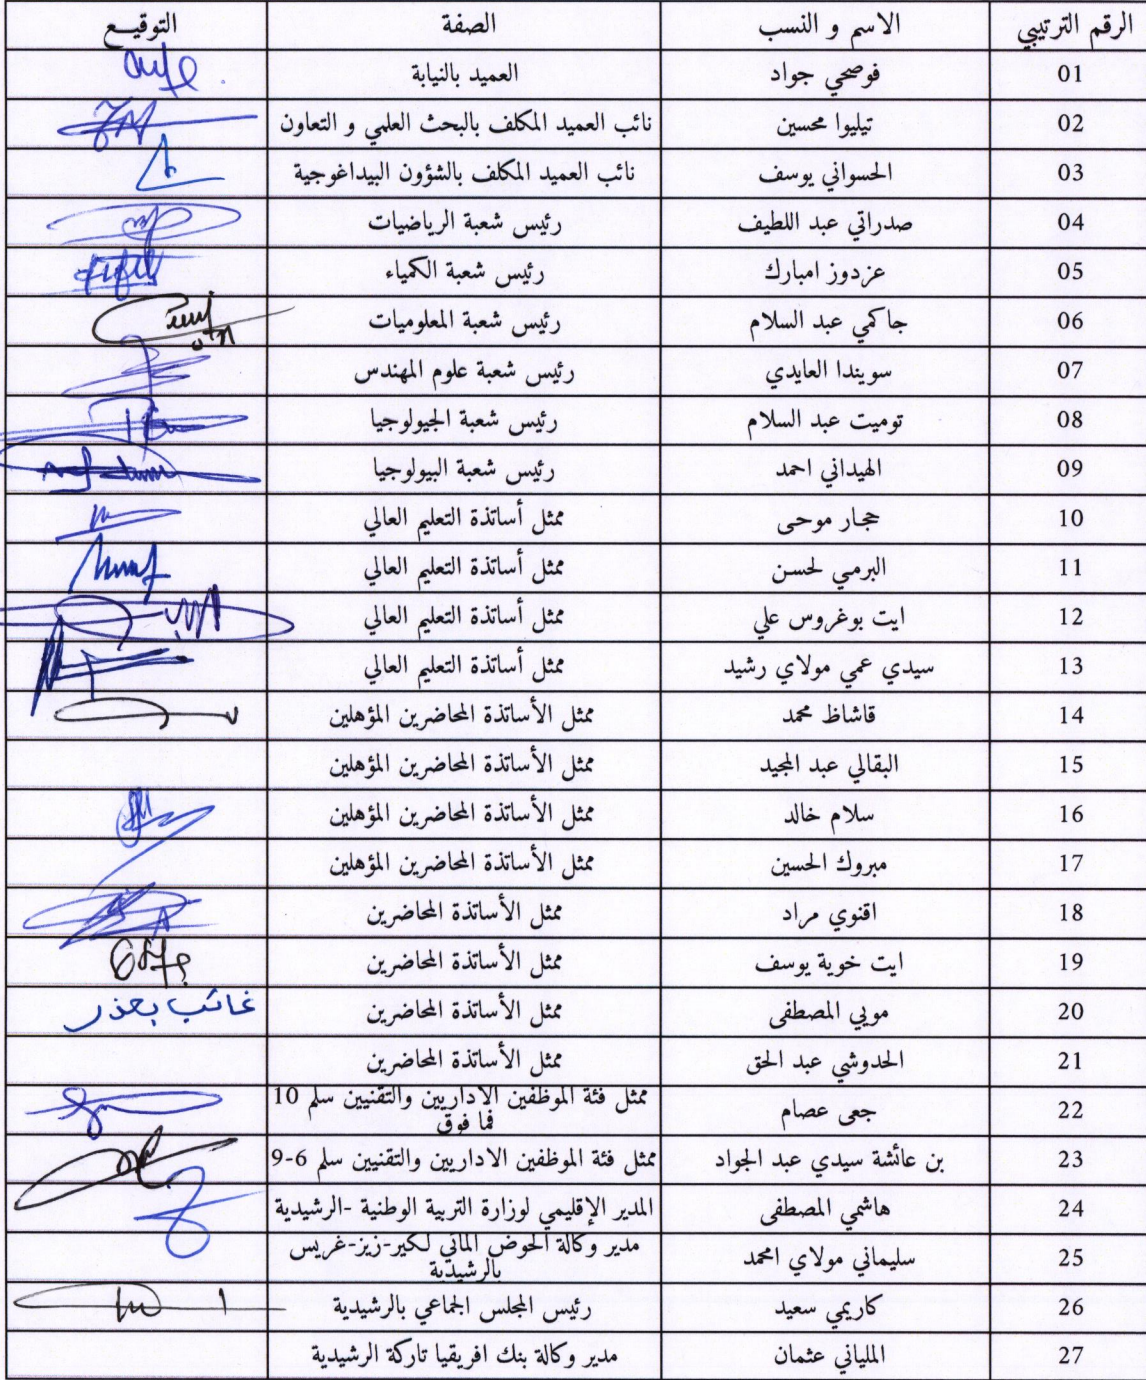 الرقم الترتيبي الاسم و النسب الصفة التوقيع
01 فوصحي جواد العميد بالنيابة
02 تيليوا محسين نائب العميد المكلف بالبحث العلمي و التعاون
03 الحسواني يوسف نائب العميد المكلف بالشؤون البيداغوجية
04 صدراتي عبد اللطيف رئيس شعبة الرياضيات
05 عزدوز امبارك رئيس شعبة الكمياء
06 جاكمي عبد السلام رئيس شعبة المعلوميات
07 سويندا العايدي رئيس شعبة علوم المهندس
08 توميت عبد السلام رئيس شعبة الجيولوجيا
09 الهيداني احمد رئيس شعبة البيولوجيا
10 حجار موحى ممثل أساتذة التعليم العالي
11 البرمي لحسن ممثل أساتذة التعليم العالي
12 ايت بوغروس علي ممثل أساتذة التعليم العالي
13 سيدي عمي مولاي رشيد ممثل أساتذة التعليم العالي
14 قاشاظ محمد ممثل الأساتذة المحاضرين المؤهلين
15 البقالي عبد المجيد ممثل الأساتذة المحاضرين المؤهلين
16 سلام خالد ممثل الأساتذة المحاضرين المؤهلين
17 مبروك الحسين ممثل الأساتذة المحاضرين المؤهلين
18 اقنوي مراد ممثل الأساتذة المحاضرين
19 ايت خوية يوسف ممثل الأساتذة المحاضرين
20 مويي المصطفى ممثل الأساتذة المحاضرين غائب بعذر
21 الحدوشي عبد الحق ممثل الأساتذة المحاضرين
22 جعى عصام ممثل فئة الموظفين الاداريين والتقنيين سلم 10
فما فوق
23 بن عائشة سيدي عبد الجواد ممثل فئة الموظفين الاداريين والتقنيين سلم 6-9
24 هاشمي المصطفى المدير الإقليمي لوزارة التربية الوطنية -الرشيدية
25 سليماني مولاي امحمد مدير وكالة الحوض المائي لكير-زيز-غريس
بالرشيدية
26 كاريمي سعيد رئيس المجلس الجماعي بالرشيدية
27 الملياني عثمان مدير وكالة بنك افريقيا تاركة الرشيدية